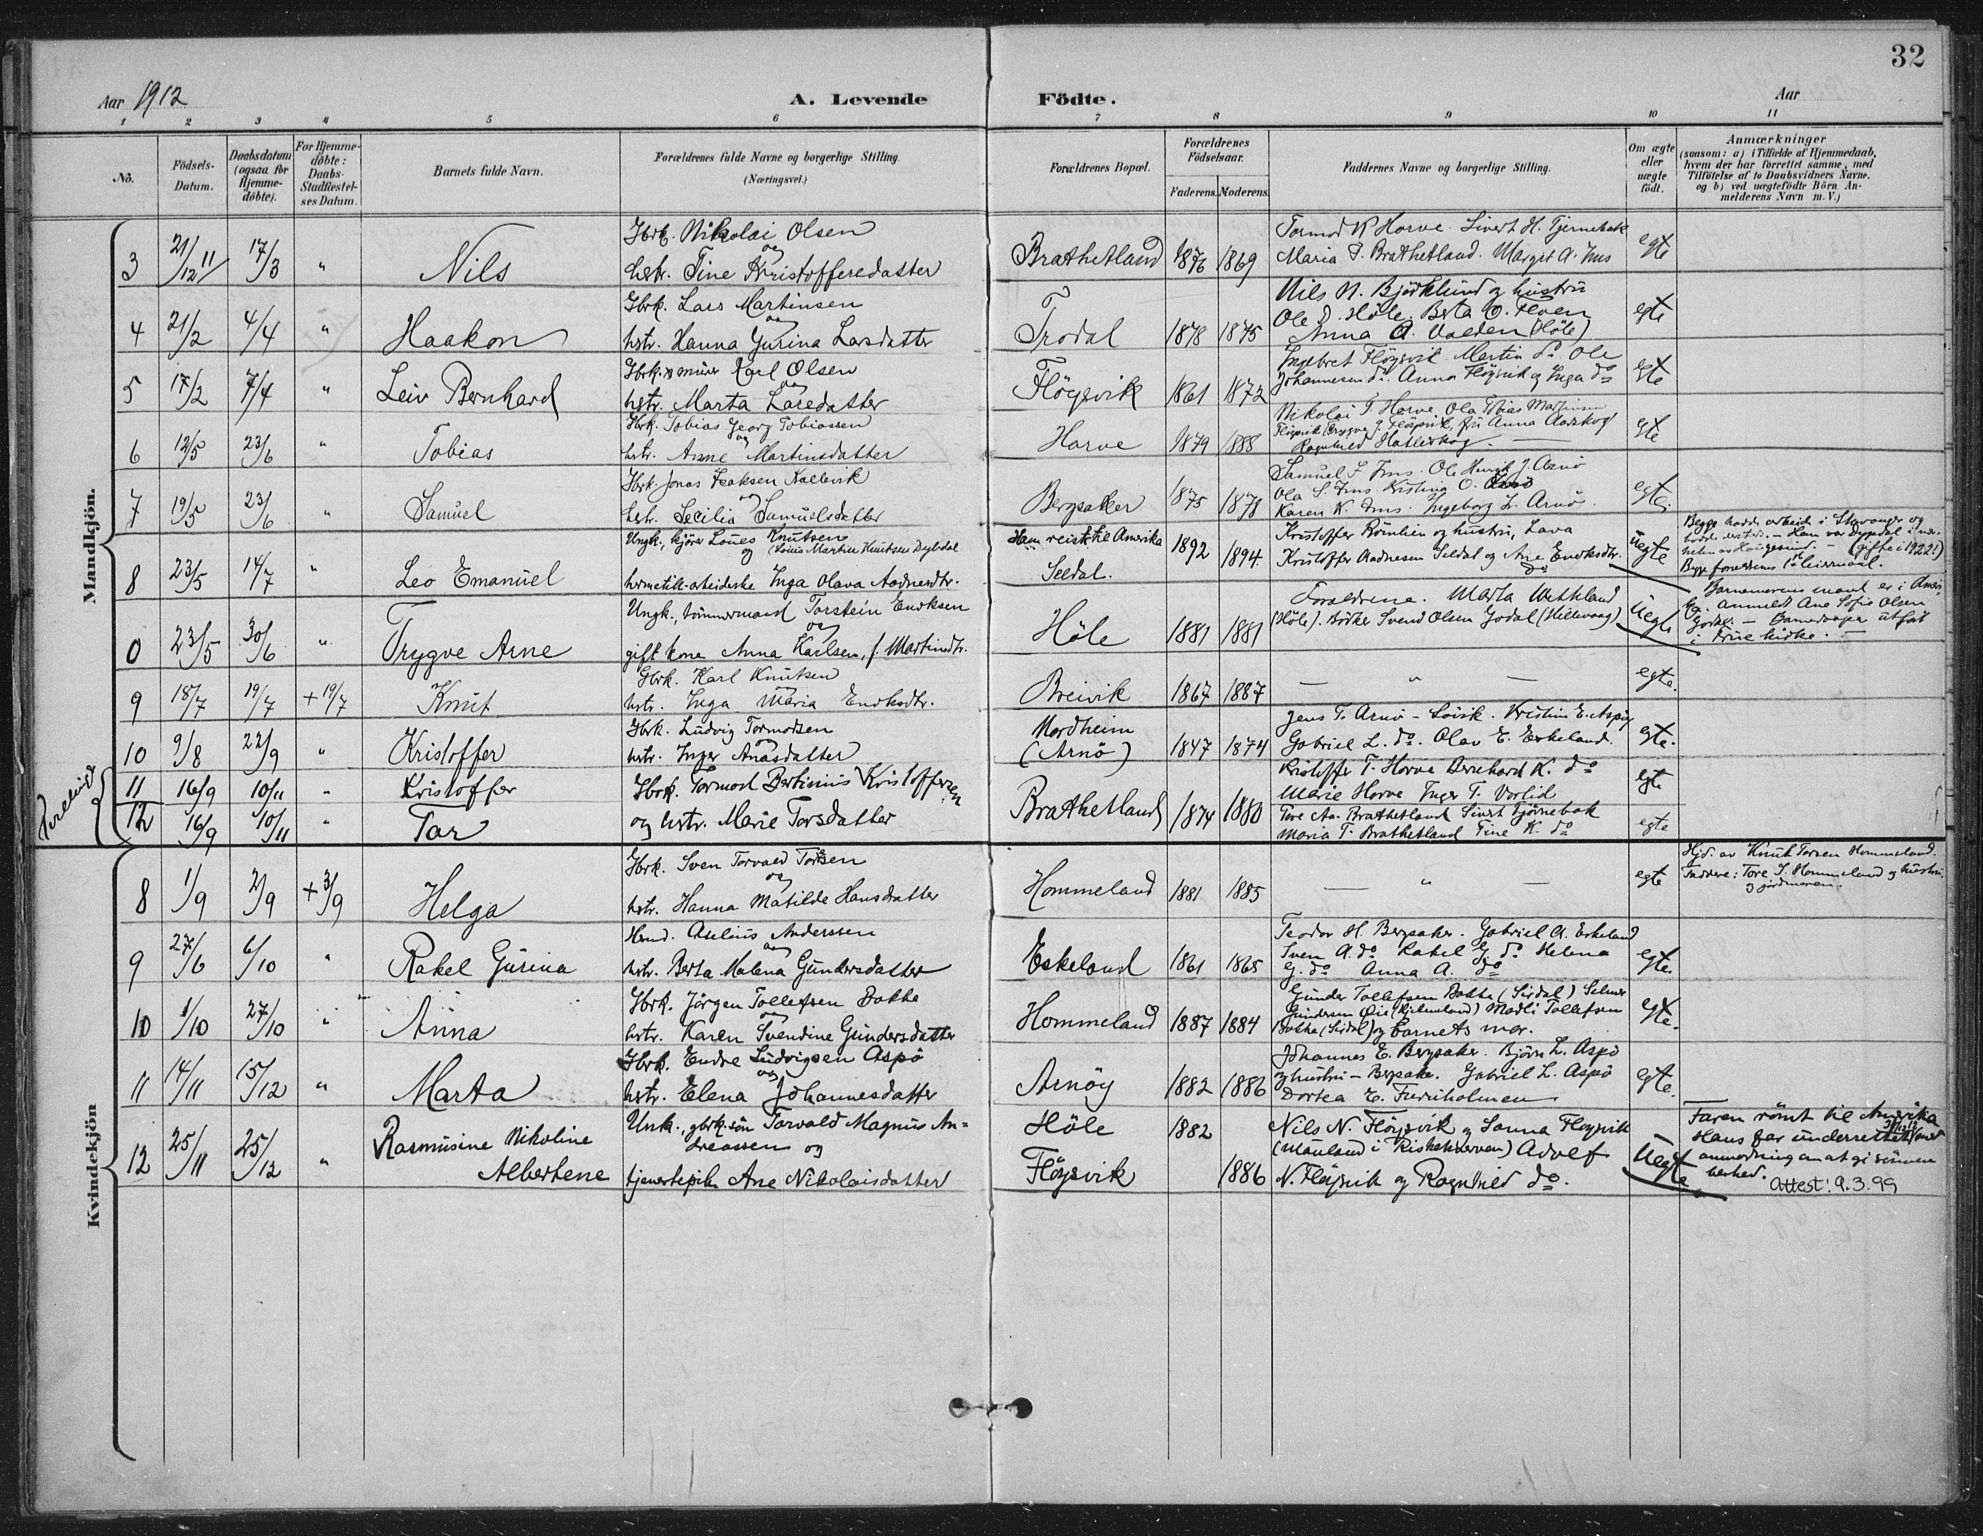 32
Aar 1912 A. Levende Födte. Aar
1 2 3 4 5 6 7 8 9 10 11
No. Födsels-Datum. Daabsdatum (ogsaa for Hjemmedöbte). For Hjemmedöbte: Daabs-Stadfæstelses Datum. Barnets fulde Navn. Forældrenes fulde Navne og borgerlige Stilling. (Næringsvei.) Forældrenes Bopæl. Forældrenes Födselsaar. Faderens. Moderens. Faddernes Navne og borgerlige Stilling. Om ægte eller uægte födt. Anmærkninger (saasom: a) i Tilfælde af Hjemmedaab, hvem der har forrettet samme, med Tilföielse af to Daabsvidners Navne. og b) ved uægtefödte Börn Anmelderens Navn m. V.)
Mandkjön.
3 21/12 11 17/3 " Nils Gbrk. Nikolai Olsen og hstr. Tine Kristoffersdatter Brathetland 1876 1869 Tormod K Horve. Sivert H. Tjernebak Maria T. Brathetland. Margit A. Ims egte
4 21/2 4/4 " Haakon Gbrk. Lars Martinsen og hstr. Hanna Gurina Larsdatter Trodal 1878 1875 Nils N. Björklund og hustru Ole D. Höle. Berta O. Anna O. (Höle) egte
5 17/2 7/4 " Leiv Bernhard Gbrk. & murer Karl Olsen og hstr. Marta Larsdatter Flöysvik 1861 1872 Ingebret Flöysvik Martin do Ole Johannesen do. Anna Flöysvik og Inga do egte
6 12/5 23/6 " Tobias Gbrk. Tobias Georg Tobiassen og hstr. Anne Martinsdatter Horve 1879 1888 Nikolai T. Horve. Ola Tobias Martinsen Flöysvik, Trygve J. Flöysvik, frk Anna Aarskog Ragnhild Hatleskog. — egte
7 19/5 23/6 " Samuel Gbrk. Jonas Isaksen Kallevik og hstr. Secilia Samuelsdatter Bergsaker 1875 1878 Samuel S. Ims. Ole Henrik J. Arnö Ola S. Ims Kristina O. Karen K. Ims. Ingeborg L. Arnö. egte.
8 23/5 14/7 " Leo Emanuel Ungk., kjörer Louis Knutsen og (Louis Martin Knutsen Dybdal) hermetik-arbeiderske Inga Olava Aadnesdtr. Han reist til Amerika Seldal. 1892 1894. Kristoffer Römlien og hustru, Lava Kristoffer Aadnesen Seldal og Ane Endresdtr. do uegte Begge hadde arbeid i Stavanger og bodde der — Han var Dypdal i nærheten av Haugesund. — (gifte i 1922!) Begge foreldrenes 1ste leiermaal.
0 23/5 30/6 " Trygve Arne Ungk., tömmermand Torstein Eriksen og gift kone Anna Karlsen, f. Martinsdtr. Höle 1881 1881 Foraldrene. Marta Wethland (Höle). Bödker Svend Olsen Godal (Hillevaag) uegte Barnemorens mand er i Amerika. Anmeldt Ane Sofie Olsen — Barnedaapen utfört i Frue kirke. —
9 18/7 19/7 + 19/7 Knut Gbrk. Karl Knutsen hstr. Inga Maria Eriksdtr. Breivik 1867 1887 — " — egte.
10 9/8 22/9 " Kristoffer Gbrk. Ludvig Tormodsen og hstr. Inger Anasdatter Nordheim (Arnö) 1847 1874 Jens T. Arnö – Lövik. Kristine E. Aspö Gabriel L. do. Olav E. Eskeland. egte.
Tvillinge
11 16/9 10/11 " Kristoffer Gbrk. Tormod Bertinius Kristoffersen Brathetland 1874 1880 Kristoffer T. Horve Bernhard K. do Marie Horve Inger T. Vorlid egte
12 16/9 10/11 " Tor og hstr. Marie Torsdatter Tore Aa. Brathetland Sivert Tjörnebak Maria T. Brathetland Tine K. do egte
Kvindekjön
8 1/9 2/9 + 3/9 Helga Gbrk. Sven Torvald Torsen og hstr. Hanna Matilde Hansdatter Hommeland 1881 1885 — " — egte Hjd. av Knut Torsen Hommeland. Faddere: Tore S. Hommeland og hustru og jordmoren.
9 27/6 6/10 " Rakel Gurina Hmd. Aselius Anderssen og hstr. Berta Malena Gundersdatter Eskeland 1861 1865 Teodor H. Bergsaker. Gabriel A. Eskeland Sven A. do Rakel G. do Helena G. do Anna A. do egte.
10 1/10 27/10 " Anna Gbrk. Jörgen Tollefsen Bakke og hstr. Karen Tvendine Gundersdatter Hommeland 1887 1884 Gunder Tollefsen Bakke (Sirdal) Selmer Gundersen Öie (Hjelmeland) Madli Tollefsen Bakke (Sirdal) og barnets mor. egte.
11 14/11 15/12 " Marta Gbrk. Endre Ludvigsen Aspö og hstr. Elena Johannesdatter Arnöy 1882 1886 Johannes E. Bergsaker. Björn L. Aspö og hustru – Bergsaker. Gabriel L. Aspö Dortea E. Furuholmen egte.
12 25/11 25/12 " Rasmusine Nikoline Albertene Unk., gbrk. sön Torvald Magnus Andreassen og tjenestepike Ane Nikolaisdatter Höle Flöysvik 1882 1886 Nils N. Flöysvik og Sanna Flöysvik (Mauland i Riskekverven) Adolf N. Flöysvik og Ragnhild do. Uegte Faren römt til Amerika Hans far underrettet 31/12 12 med anmodning om at gi sönnen beskjed. Attest: 9.3.99